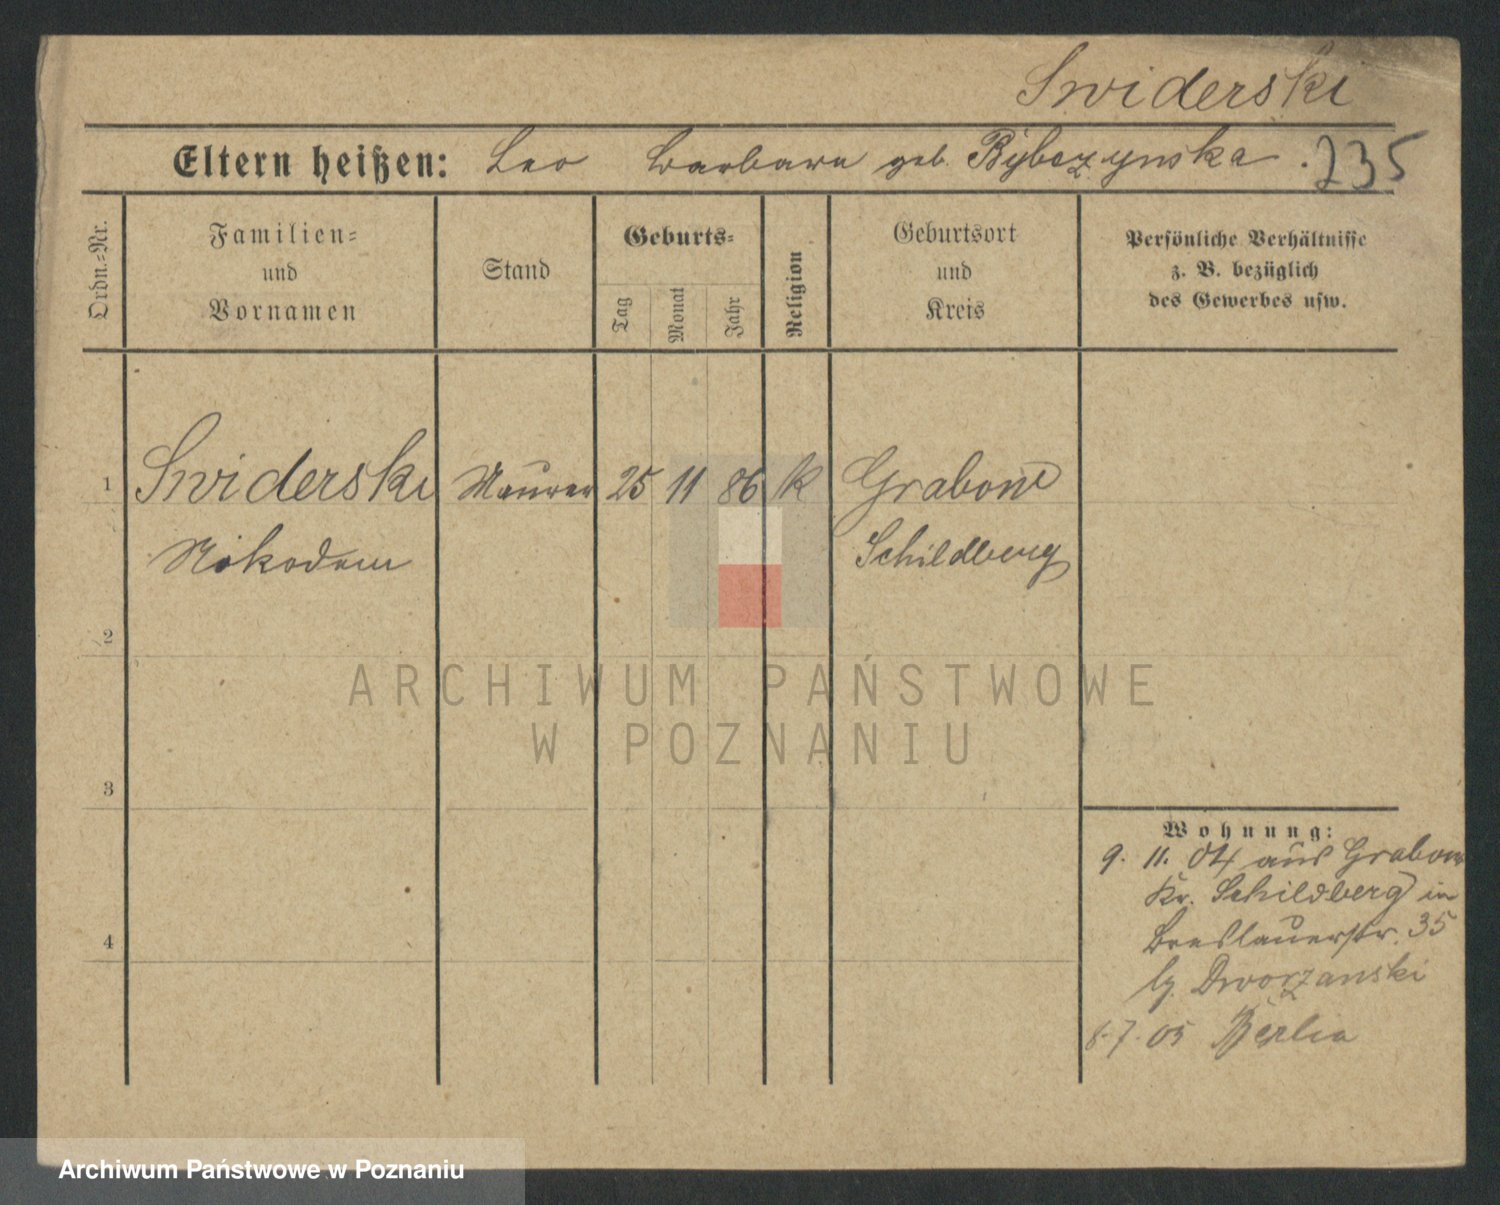 Swiderski
Eltern heißen: Leo Barbara geb. Rybczynska. 235
Ordn.=Nr.
Familien=
und
Vornamen
Stand
Geburts=
Tag
Monat
Jahr
Religion
Geburtsort
und
Kreis
Persönliche Verhältnisse
z. B. bezüglich
des Gewerbes usw.
1 Swiderski Maurer 25 11 86 K Grabow
Nikodem Schildberg
2
ARCHIWUM PAŃSTWOWE
W POZNANIU
3
Wohnung:
9. 11. 04 aus Grabow
Kr. Schildberg in
4 Breslauerstr. 35
Dworzanski
8.7.05 Berlin
Archiwum Państwowe w Poznaniu